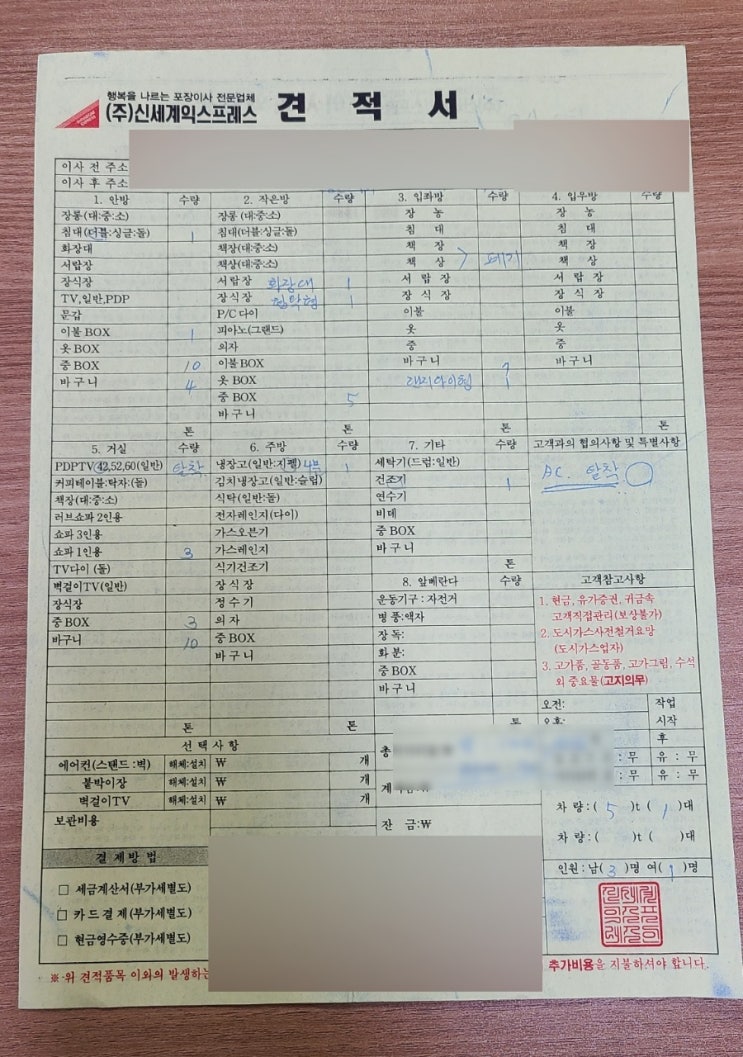 행복을 나르는 포장이사 전문업체
(주)신세계익스프레스 견 적 서
이사 전 주소
이사 후 주소
1. 안방 수량 2. 작은방 수량 3. 입좌방 수량 4. 입우방 수량
장롱(대:중:소) 장롱(대:중:소) 장 농 장 농
침대(더블:싱글:돌) 1 침대(더블:싱글:돌) 침 대 침 대
화장대 책장(대:중:소) 책 장 책 장
서랍장 책상(대:중:소) 책 상 폐기 책 상
장식장 서랍장 화장대 1 서 랍 장 서 랍 장
TV,일반,PDP 장식장 협탁형 1 장 식 장 장 식 장
문갑 P/C 다이 이불 이불
이불 BOX 1 피아노(그랜드) 옷 옷
옷 BOX 의자 중 중
중 BOX 10 이불 BOX 바 구 니 7 바 구 니
바 구 니 4 옷 BOX 1
중 BOX 5
바 구 니
톤 톤 톤 톤
5. 거실 수량 6. 주방 수량 7. 기타 수량 고객과의 협의사항 및 특별사항
PDPTV(42,52,60(일반) 탈착 냉장고(일반:지펠) 4문 1 세탁기(드럼:일반) AC. 탈착
커피테이블:탁자:(돌) 김치냉장고(일반:슬림) 건조기 1
책장(대:중:소) 식탁(일반:돌) 연수기
러브쇼파 2인용 전자레인지(다이) 비데
쇼파 3인용 가스오븐기 중 BOX
쇼파 1인용 3 가스레인지 바 구 니
TV다이 (돌) 식기건조기 톤
벽걸이TV(일반) 장 식 장 8. 앞베란다 수량 고객참고사항
장식장 정 수 기 운동기구 : 자전거 1. 현금, 유가증권, 귀금속
중 BOX 3 의 자 병 풍:액자 고객직접관리(보상불가)
바구니 10 중 BOX 장 독: 2. 도시가스사전철거요망
바 구 니 화 분: (도시가스업자)
중 BOX 3. 고가품, 골동품, 고가그림, 수석
바 구 니 외 중요물(고지의무)
톤 톤 톤 오전: 작업
오후: 시작
선 택 사 항 총 후
에어컨(스탠드 :벽) 해체:설치 ₩ 개 : 무 유 : 무
붙박이장 해체:설치 ₩ 개 계 : 무 유 : 무
벽걸이TV 해체:설치 ₩ 개
보관비용 잔 금:₩ 차 량 :( 5 )t ( 1 )대
차 량 :( )t ( )대
결 제 방 법 인원 : 남( 3 )명 여( 1 )명
□ 세금계산서(부가세별도)
□ 카 드 결 제 (부가세별도)
□ 현금영수증(부가세별도)
※ 위 견적품목 이외의 발생하는 추가비용을 지불하셔야 합니다.